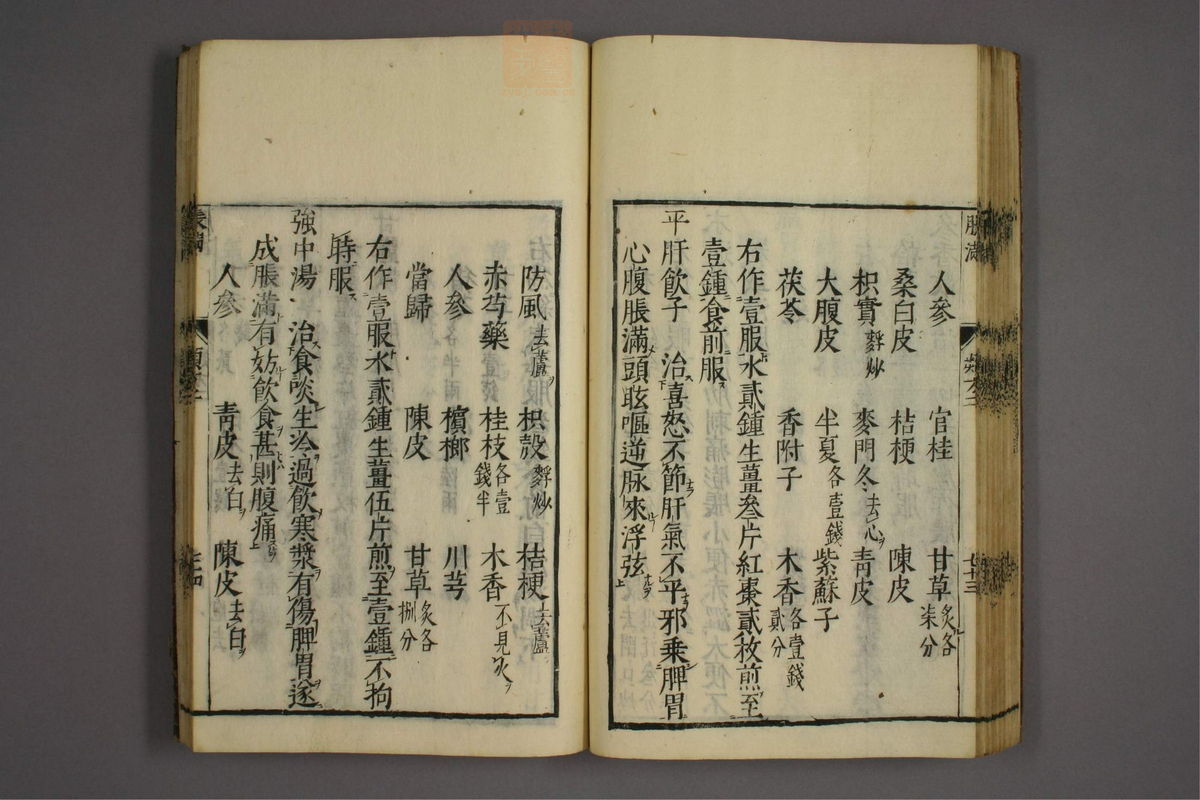 脹滿
七十三
人參　官桂　甘草炙各柒分
桑白皮　桔梗　陳皮
枳實麩炒　麥門冬去心　青皮
大腹皮　半夏各壹錢　紫蘇子
茯苓　香附子　木香各壹錢貳分
右作壹服水貳鍾生薑叁片紅棗貳枚煎至
壹鍾食前服
平肝飲子　治喜怒不節肝氣不平邪乗脾胃
心腹脹滿頭眩嘔逆脉來浮弦
防風去蘆　枳殼麩炒　桔梗去蘆
赤芍藥　桂枝各壹錢半　木香不見火
人參　檳榔　川芎
當歸　陳皮　甘草炙各捌分
右作壹服水貳鍾生薑伍片煎至壹鍾不拘
時服
強中湯　治食啖生冷過飲寒漿有傷脾胃遂
成脹滿有妨飲食甚則腹痛
人參　青皮去白　陳皮去白